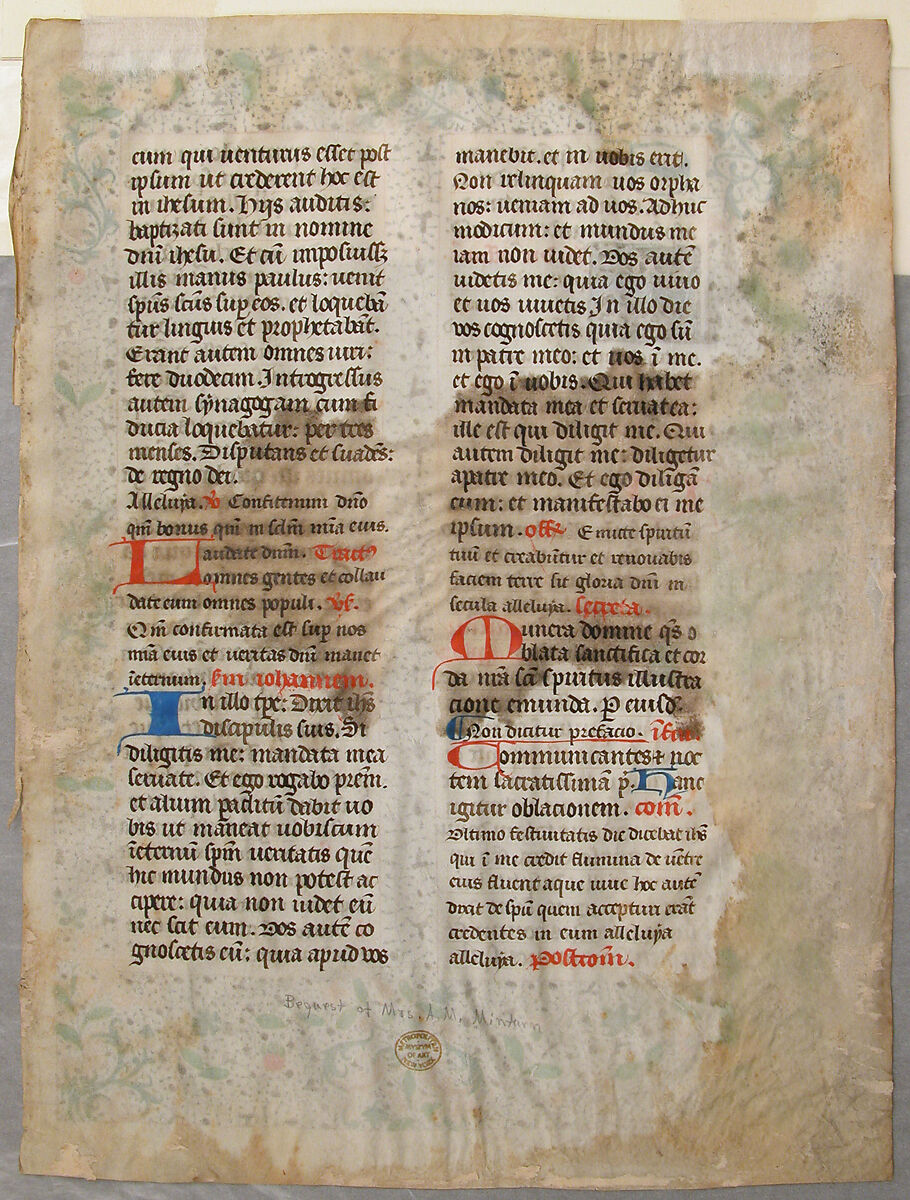 eum qui venturus esset post
ipsum ut crederent hoc est
in ihesum. Hijs auditis:
baptizati sunt in nomine
dnī ihesu. Et cū imposuissꝫ
illis manus paulus: venit
spūs scūs sup eos. et loquebā
tur linguis et prophetabāt.
Erant autem omnes viri:
fere duodecim. Introgressus
autem synagogam cum fi
ducia loquebatur: per tres
menses. Disputans et suadēs:
de regno dei.
Alleluja. V Confitemini dnō
qm̄ bonus qm̄ in sclm̄ mīa eius.
Laudate dnm̄. Tract
omnes gentes et collau
date eum omnes populi. Vs.
Qm̄ confirmata est sup nos
mīa eius et veritas dnī manet
ī eternum. Sm̄ iohannem.
In illo tpe: Dixit ihs
discipulis suis. Si
diligitis me: mandata mea
servate. Et ego rogabo prēm.
et alium paclitū dabit vo
bis ut maneat vobiscum
ī eternū spm̄ veritatis quē
hic mundus non potest ac
cipere: quia non videt eū
nec scit eum. Vos autē co
gnoscetis eū: quia apud vos
manebit. et in vobis erit.
Non relinquam vos orpha
nos: veniam ad vos. Adhuc
modicum: et mundus me
iam non videt. Vos autē
videtis me: quia ego vivo
et vos vivetis In illo die
vos cognoscetis quia ego sū
in patre meo: et vos ī me.
et ego ī vobis. Qui habet
mandata mea et servat ea:
ille est qui diligit me. Qui
autem diligit me: diligetur
a patre meo. Et ego diligā
eum: et manifestabo ei me
ipsum. off Emitte spiritū
tuū et creabūtur et renovabis
faciem terre sit gloria dnī in
secula alleluja. secreta.
Munera domine qs o
blata sanctifica et cor
da nrā scī spiritus illustra
cione emunda. P eiusd.
Non dicitur prefacio. īfra
Communicantes et noc
tem sacratissimā p. Hanc
igitur oblacionem. com̄.
Ultimo festivitatis die dicebat ihs
qui ī me credit flumina de vētre
eius fluent aque vive hoc autē
dixit de spū quem accepturi erāt
credentes in eum alleluja
alleluja. Postcom̄.
Bequest of Mrs. A.M. Minturn
METROPOLITAN
MUSEUM
OF ART
NEW YORK